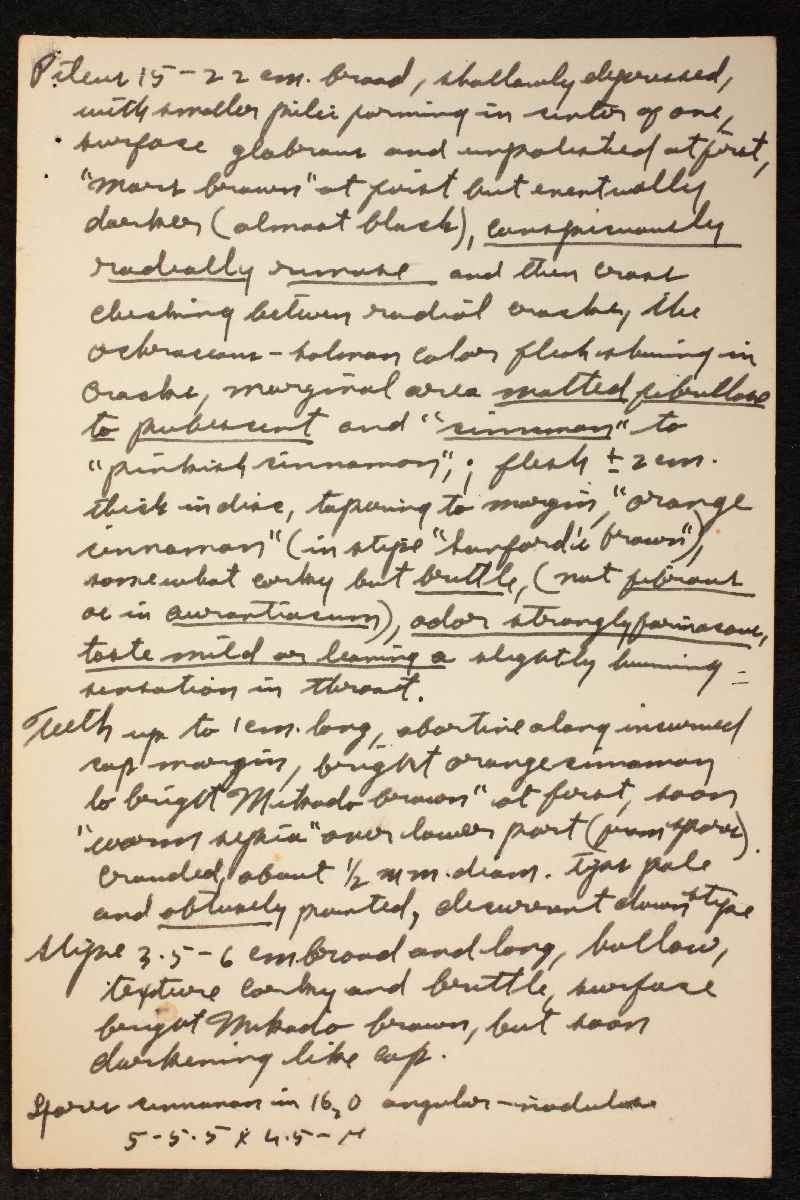 Pileus 15-22 cm. broad, shallowly depressed,
with smaller pilei forming in center of one,
surface glabrous and unpolished at first,
"mars brown" at first but eventually
darker (almost black), conspicuously
radially rimose and then cross
checking between radial cracks, the
ochraceous-salmon color flesh showing in
cracks, marginal area matted fibrillose
to pubescent and "cinnamon" to
"pinkish cinnamon"; flesh ± 2 cm.
thick in disc, tapering to margin, "orange
cinnamon" (in stipe "Sanford's brown"),
somewhat corky but brittle, (not fibrous
as in aurantiacum), odor strongly farinaceous,
taste mild or leaving a slightly burning
sensation in throat.
Teeth up to 1 cm. long, abortive along incurved
cap margin, bright orange cinnamon
to bright Mikado brown" at first, soon
"warm sepia" over lower part (from spores).
crowded, about 1/2 mm. diam. tips pale
and obtusely pointed, decurrent down stype
Stipe 3.5-6 cm broad and long, hollow,
texture corky and brittle, surface
bright Mikado brown, but soon
darkening like cap.
Spores cinnamon in angular-nodulose
5-5.5 x 4.5-